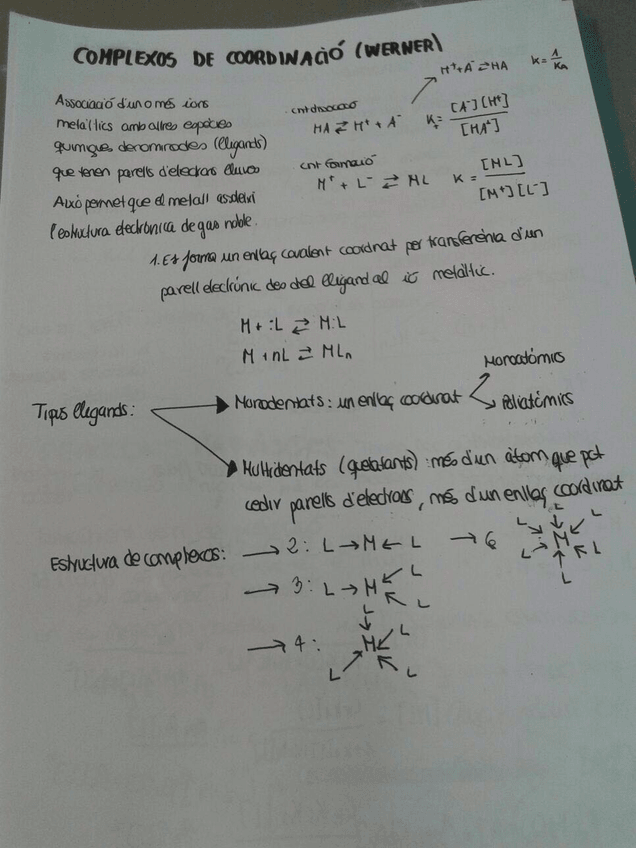 COMPLEXOS DE COORDINACIÓ (WERNER)
Associació d'un o més ions
metàl·lics amb altres espècies
químiques denominades (lligands)
que tenen parells d'electrons lliures
Això permet que el metall
l'estructura electrònica de gas noble.
cnt dissociació
HA ⇄ H⁺ + A⁻
K = [A⁻][H⁺] / [HA]
H⁺ + A⁻ ⇄ HA K = 1/Ka
cnt formació
M⁺ + L⁻ ⇄ ML K = [ML] / [M⁺][L⁻]
1. Es forma un enllaç covalent coordinat per transferència d'un
parell electrònic des del lligand al ió metàl·lic.
M + :L ⇄ M:L
M + nL ⇄ MLn
Tipus lligands:
Monodentats: un enllaç coordinat
Monoatòmics
Poliatòmics
Multidentats (quelatants): més d'un àtom que pot
cedir parells d'electrons, més d'un enllaç coordinat
Estructura de complexos:
→ 2: L → M ← L
→ 3: L → M L L
→ 4: L M L L L
→ 6 L L L M L L L